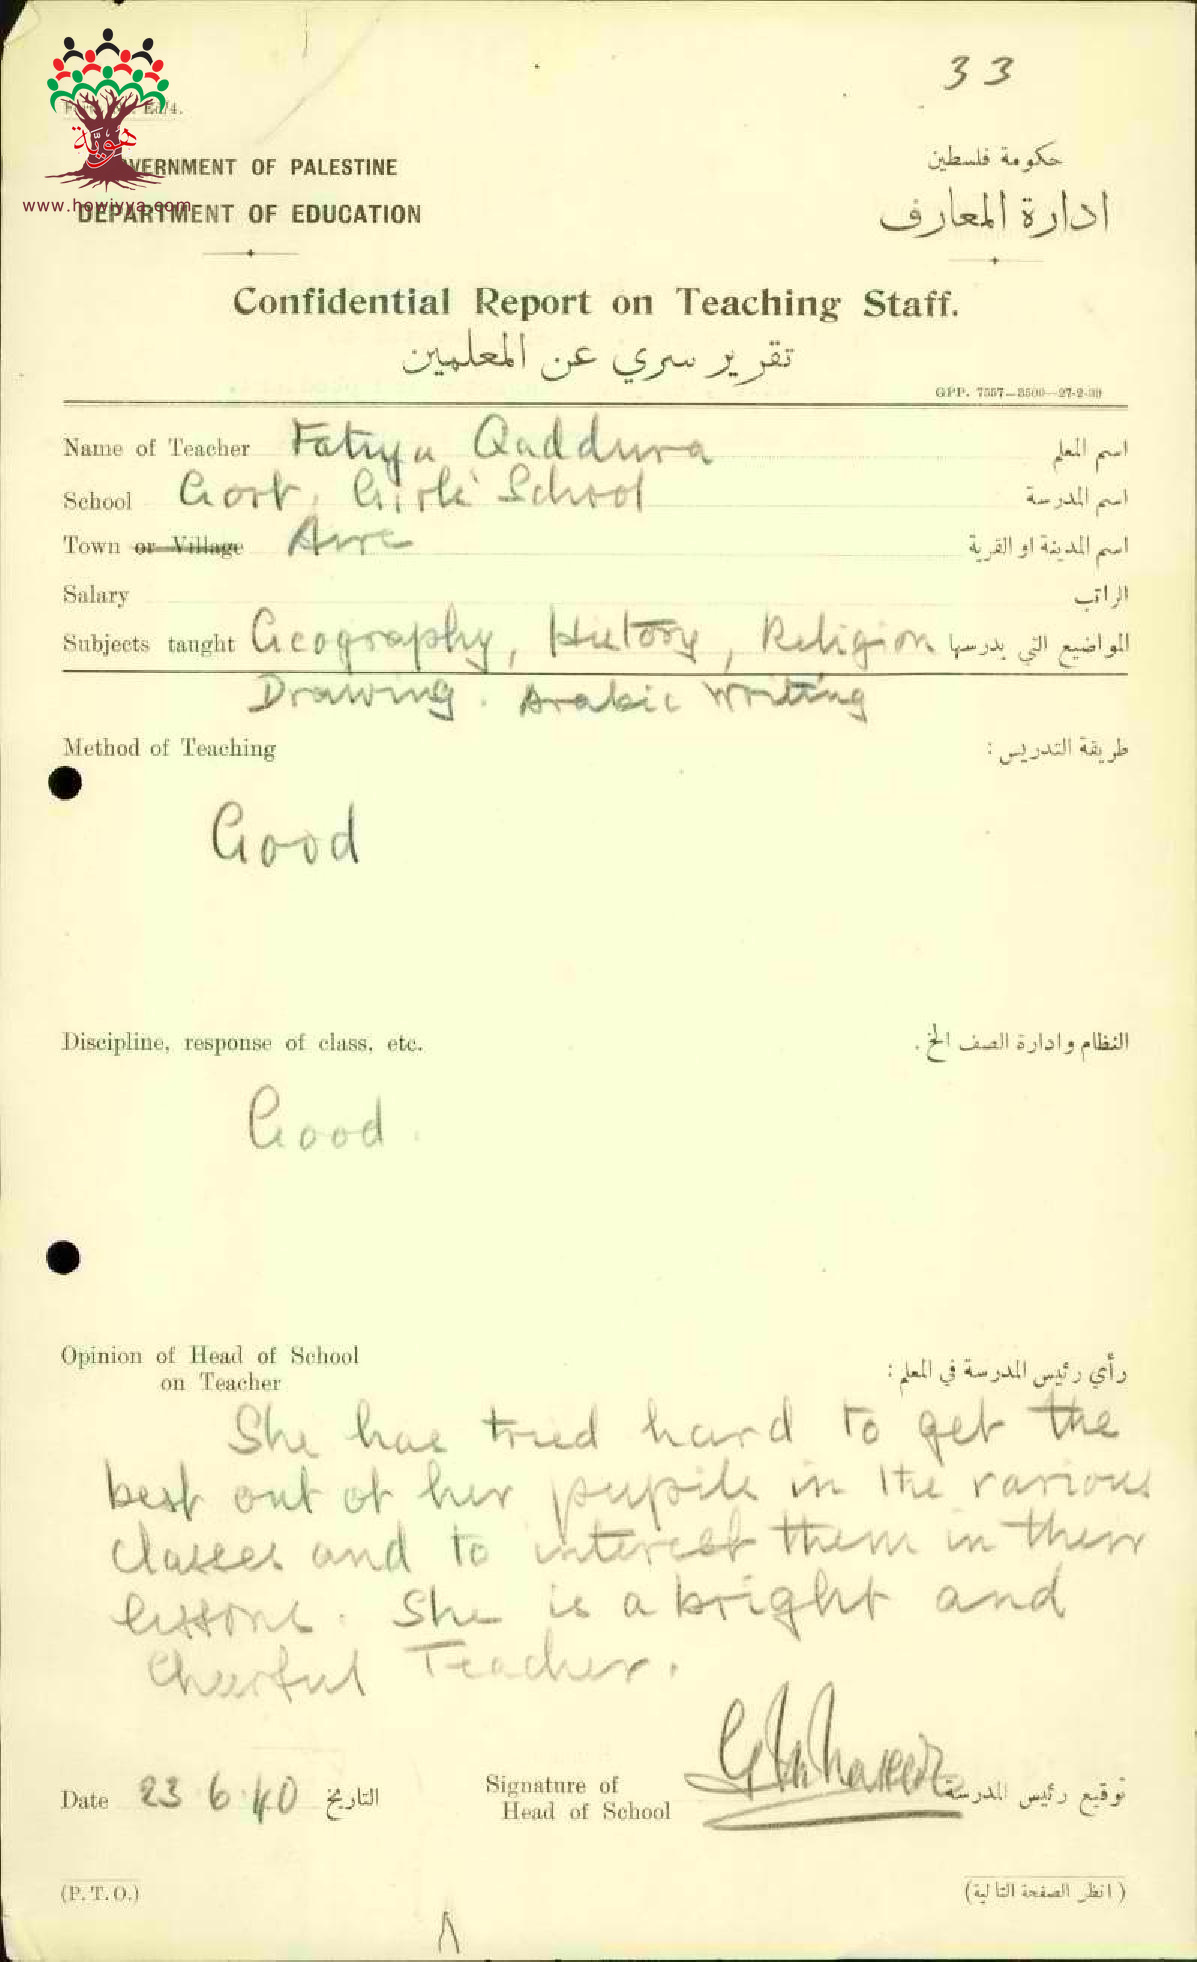 33
Ed/4.
هوية
www.howiyya.com
VERNMENT OF PALESTINE
DEPARTMENT OF EDUCATION
حكومة فلسطين
ادارة المعارف
Confidential Report on Teaching Staff.
تقرير سري عن المعلمين
GPP. 7557—3500—27-2-39
Name of Teacher Fatiya Qaddura اسم المعلم
School Govt. Girls' School اسم المدرسة
Town or Village Acre اسم المدينة او القرية
Salary الراتب
Subjects taught Geography, History, Religion المواضيع التي يدرسها
Drawing. Arabic Writing
Method of Teaching طريقة التدريس :
Good
Discipline, response of class, etc. النظام وادارة الصف الخ .
Good
Opinion of Head of School
on Teacher رأي رئيس المدرسة في المعلم :
She has tried hard to get the
best out of her pupils in the various
classes and to interest them in their
lessons. She is a bright and
cheerful Teacher.
Date 23 6 40 التاريخ
Signature of
Head of School توقيع رئيس المدرسة
(P.T.O.) ( انظر الصفحة التالية )